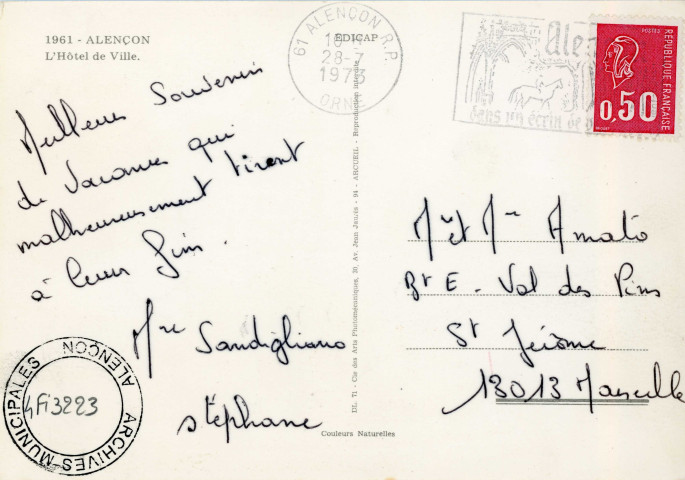 1961 - ALENÇON
L'Hôtel de Ville.
EDICAP
61 ALENÇON R.P.
28-7
1973
ORNE
Alen
dans un écrin de
POSTES
RÉPUBLIQUE FRANÇAISE
0,50
Meilleurs Souvenirs
de Vacances qui
malheureusement tirent
à leur fin.
Mme Sandigliano
Stéphane
DL 71 - Cie des Arts Photomécaniques, 30, Av. Jean Jaurès - 94 - ARCUEIL - Reproduction interdite
Mr et Mme Amato
Bt E - Val des Pins
St Jérôme
13013 Marseille
ARCHIVES MUNICIPALES
ALENÇON
4Fi3223
Couleurs Naturelles